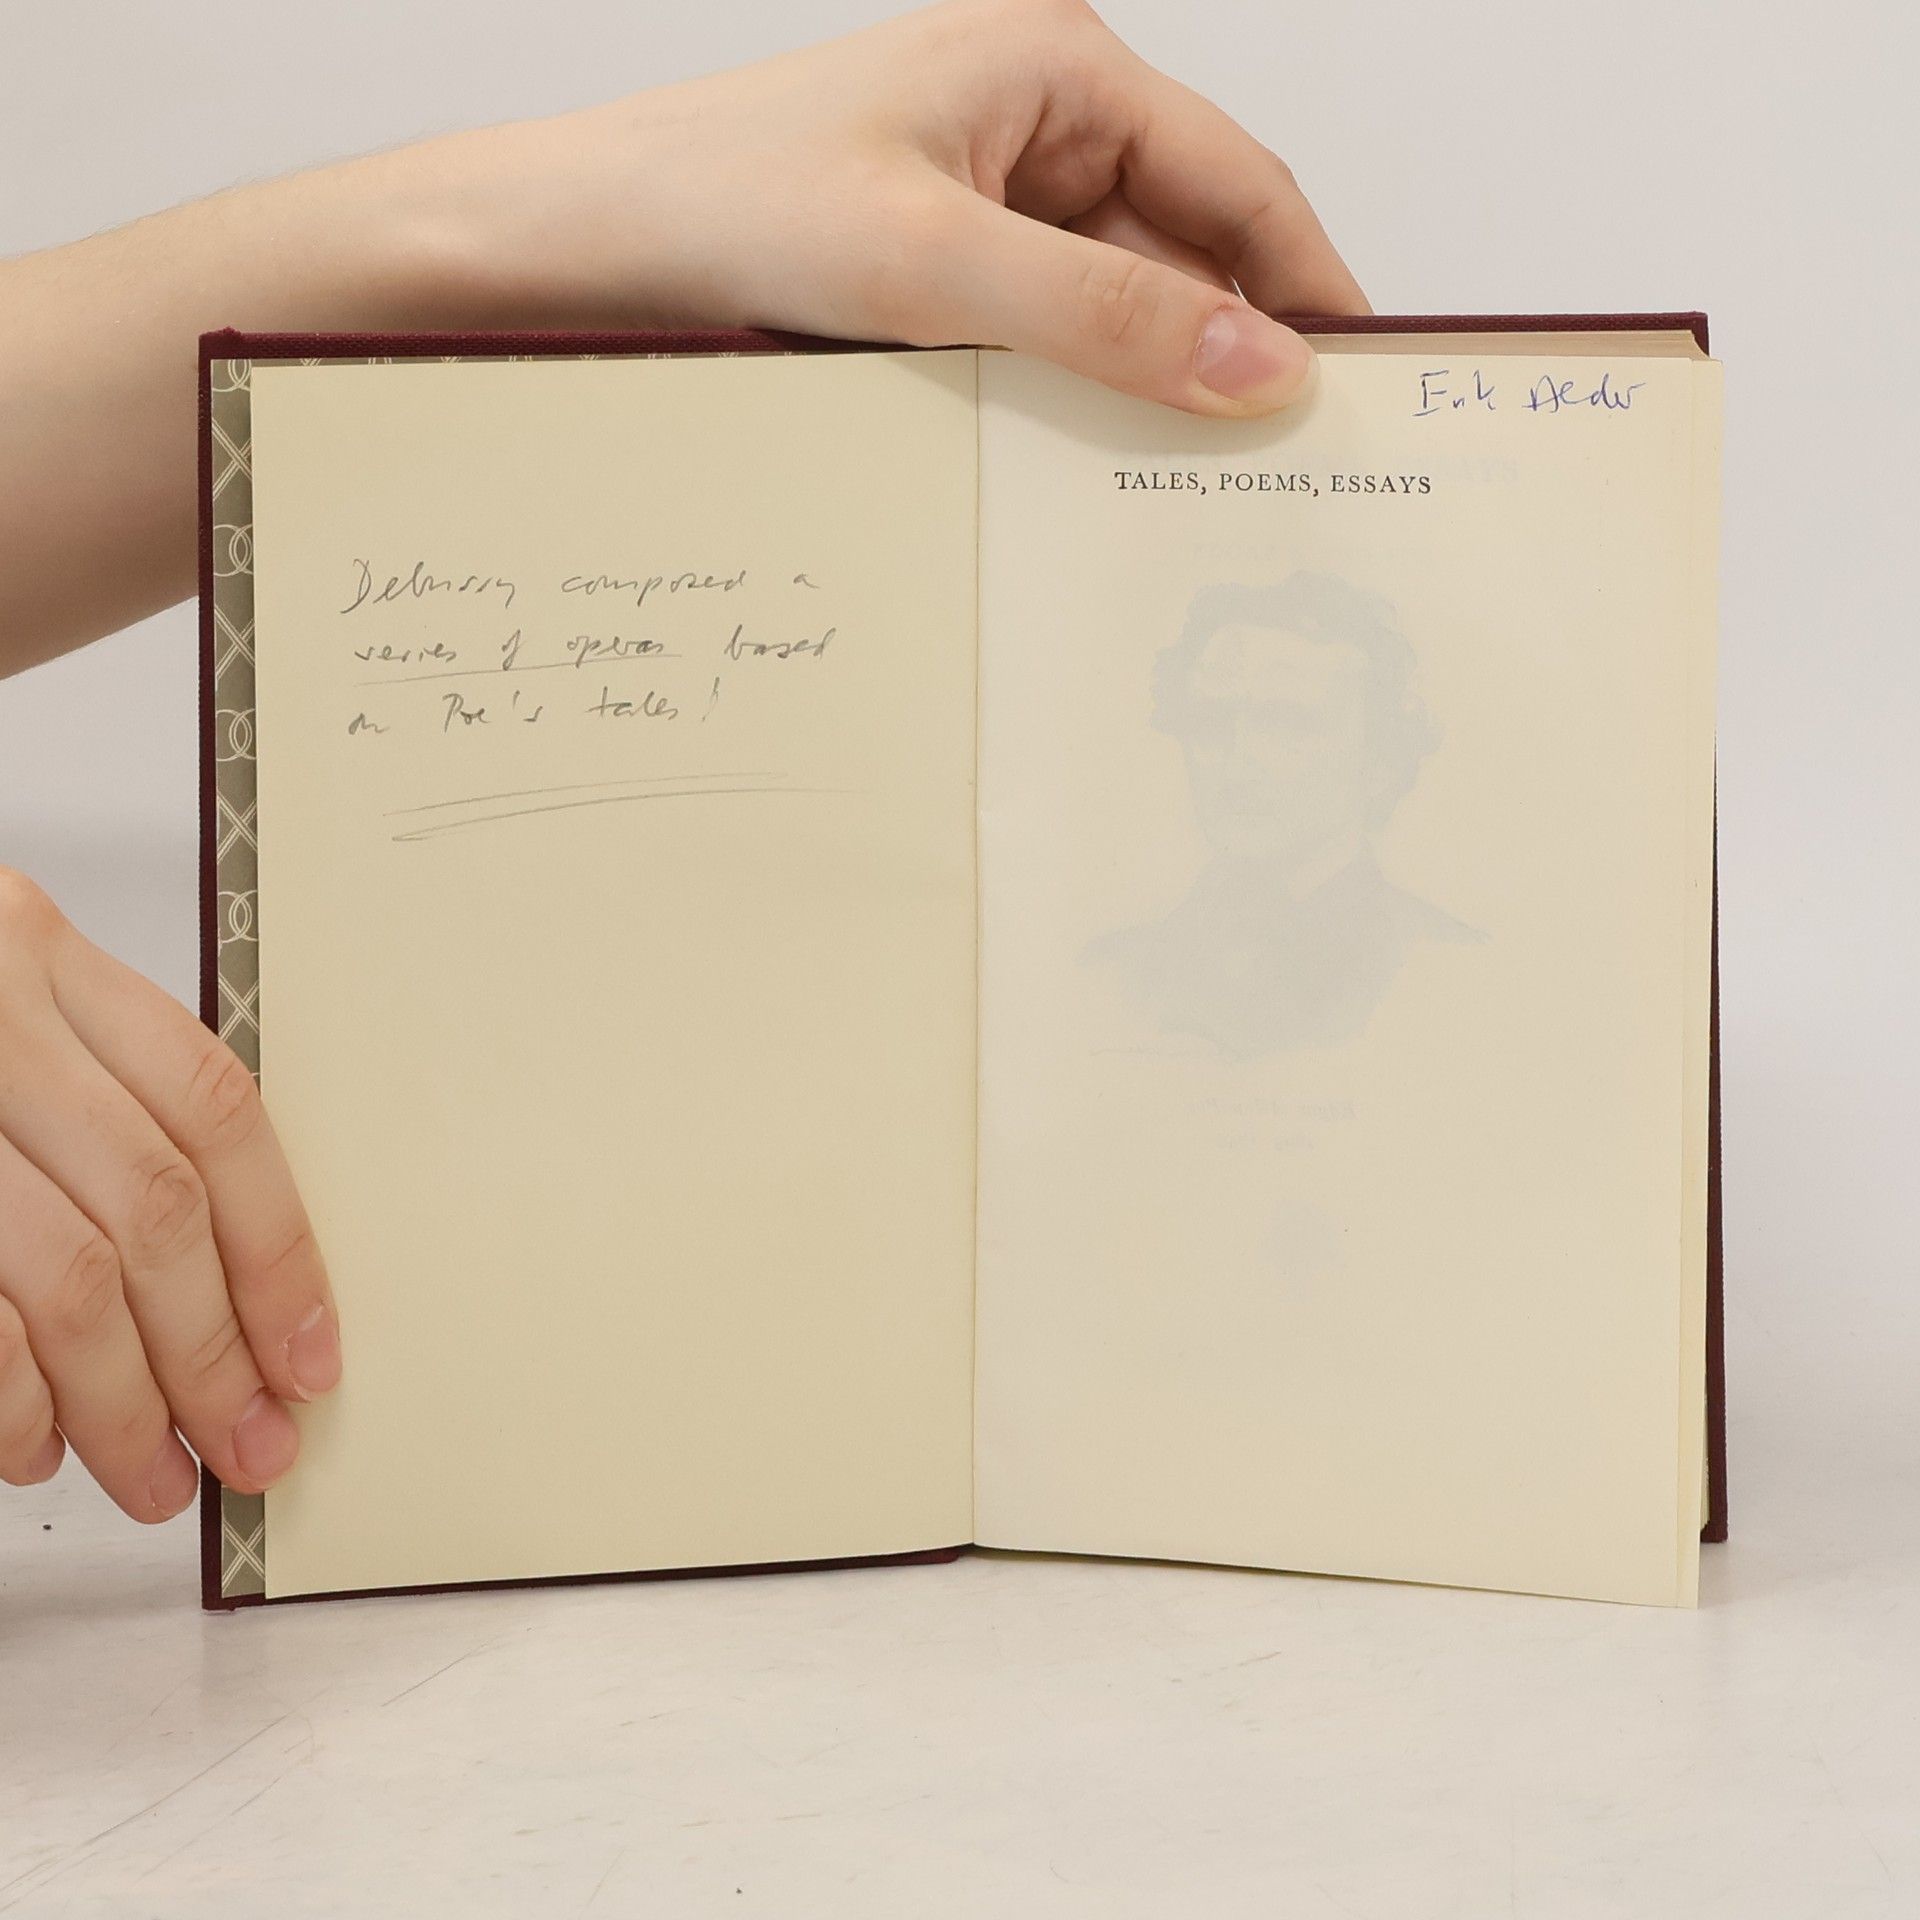 Debussy composed a
series of operas based
on Poe's tales!
Erik
TALES, POEMS, ESSAYS